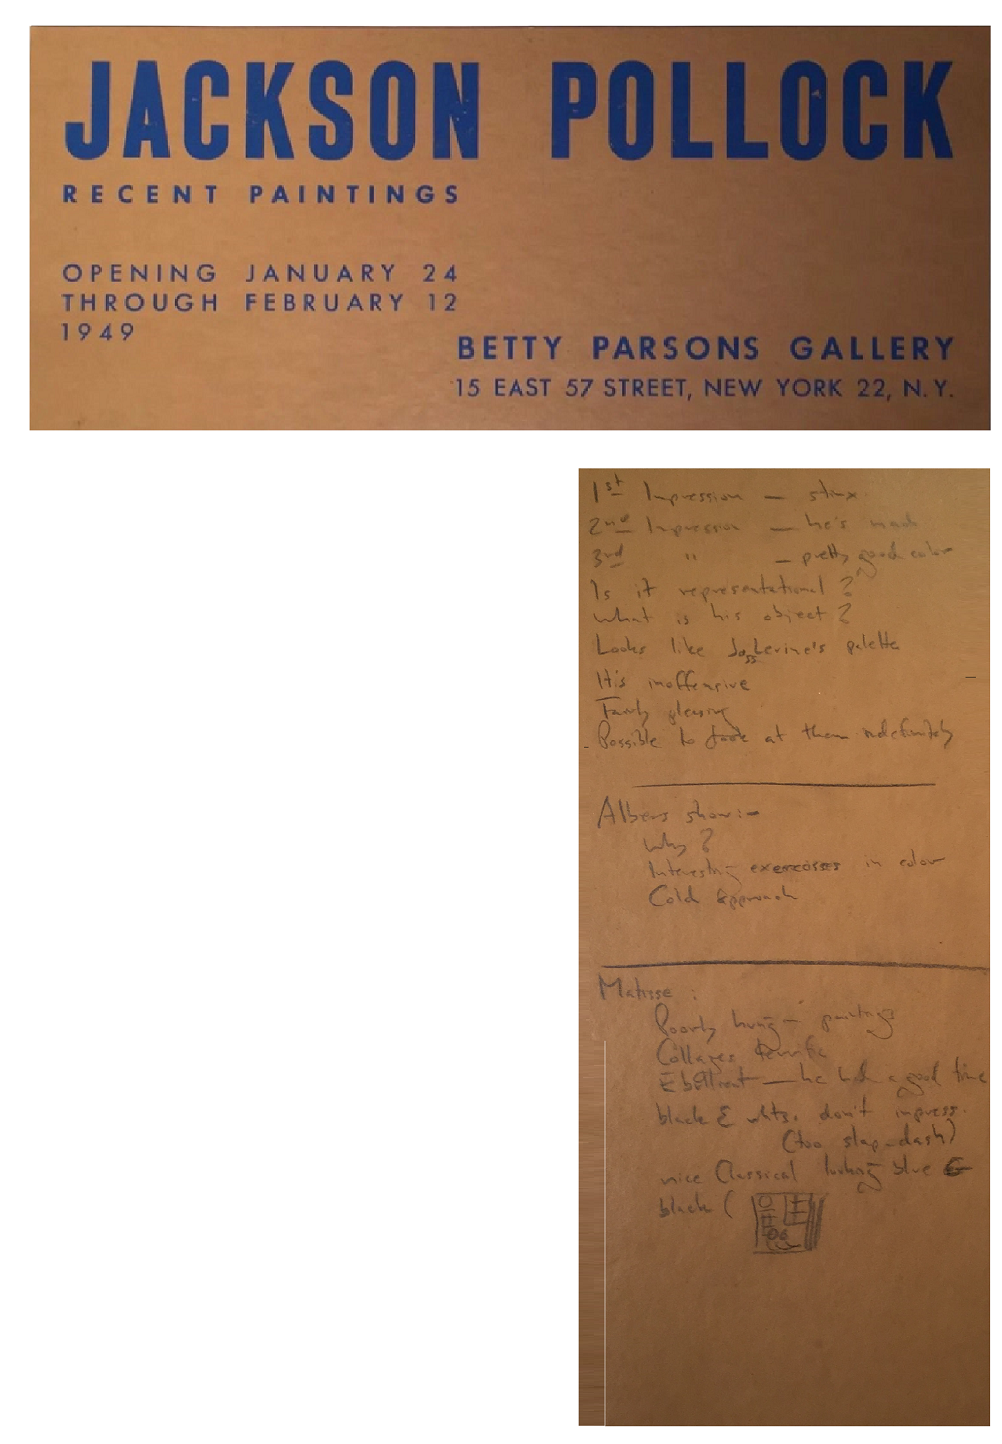 JACKSON POLLOCK
RECENT PAINTINGS
OPENING JANUARY 24
THROUGH FEBRUARY 12
1949
BETTY PARSONS GALLERY
15 EAST 57 STREET, NEW YORK 22, N.Y.
1st Impression — stinx
2nd Impression — he's mad
3rd " — pretty good color
Is it representational?
What is his object?
Looks like Levine's palette
It's inoffensive
Fairly pleasing
Possible to look at them indefinitely
Albers show:-
Why?
Interesting exercises in color
Cold Approach
Matisse:
Poorly hung — paintings
Collages terrific
Ebullient — he had a good time
black & whts. don't impress.
(too slap-dash)
nice Classical looking blue &
black (